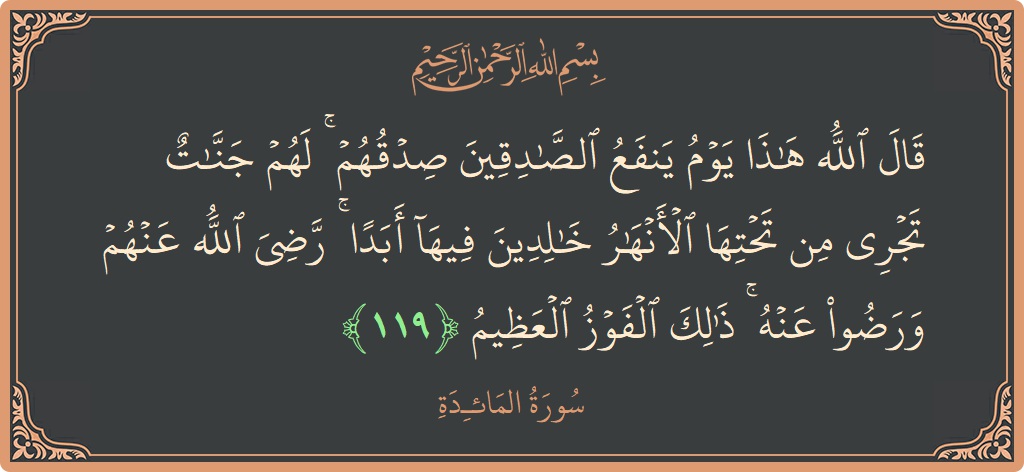 بِسْمِ اللهِ الرَّحْمٰنِ الرَّحِيْمِ
قَالَ ٱللَّهُ هَـٰذَا يَوْمُ يَنفَعُ ٱلصَّـٰدِقِينَ صِدْقُهُمْ ۚ لَهُمْ جَنَّـٰتٌ
تَجْرِى مِن تَحْتِهَا ٱلْأَنْهَـٰرُ خَـٰلِدِينَ فِيهَآ أَبَدًا ۚ رَّضِىَ ٱللَّهُ عَنْهُمْ
وَرَضُوا۟ عَنْهُ ۚ ذَٰلِكَ ٱلْفَوْزُ ٱلْعَظِيمُ ﴿١١٩﴾
سُورَةُ المَائـِدَةِ